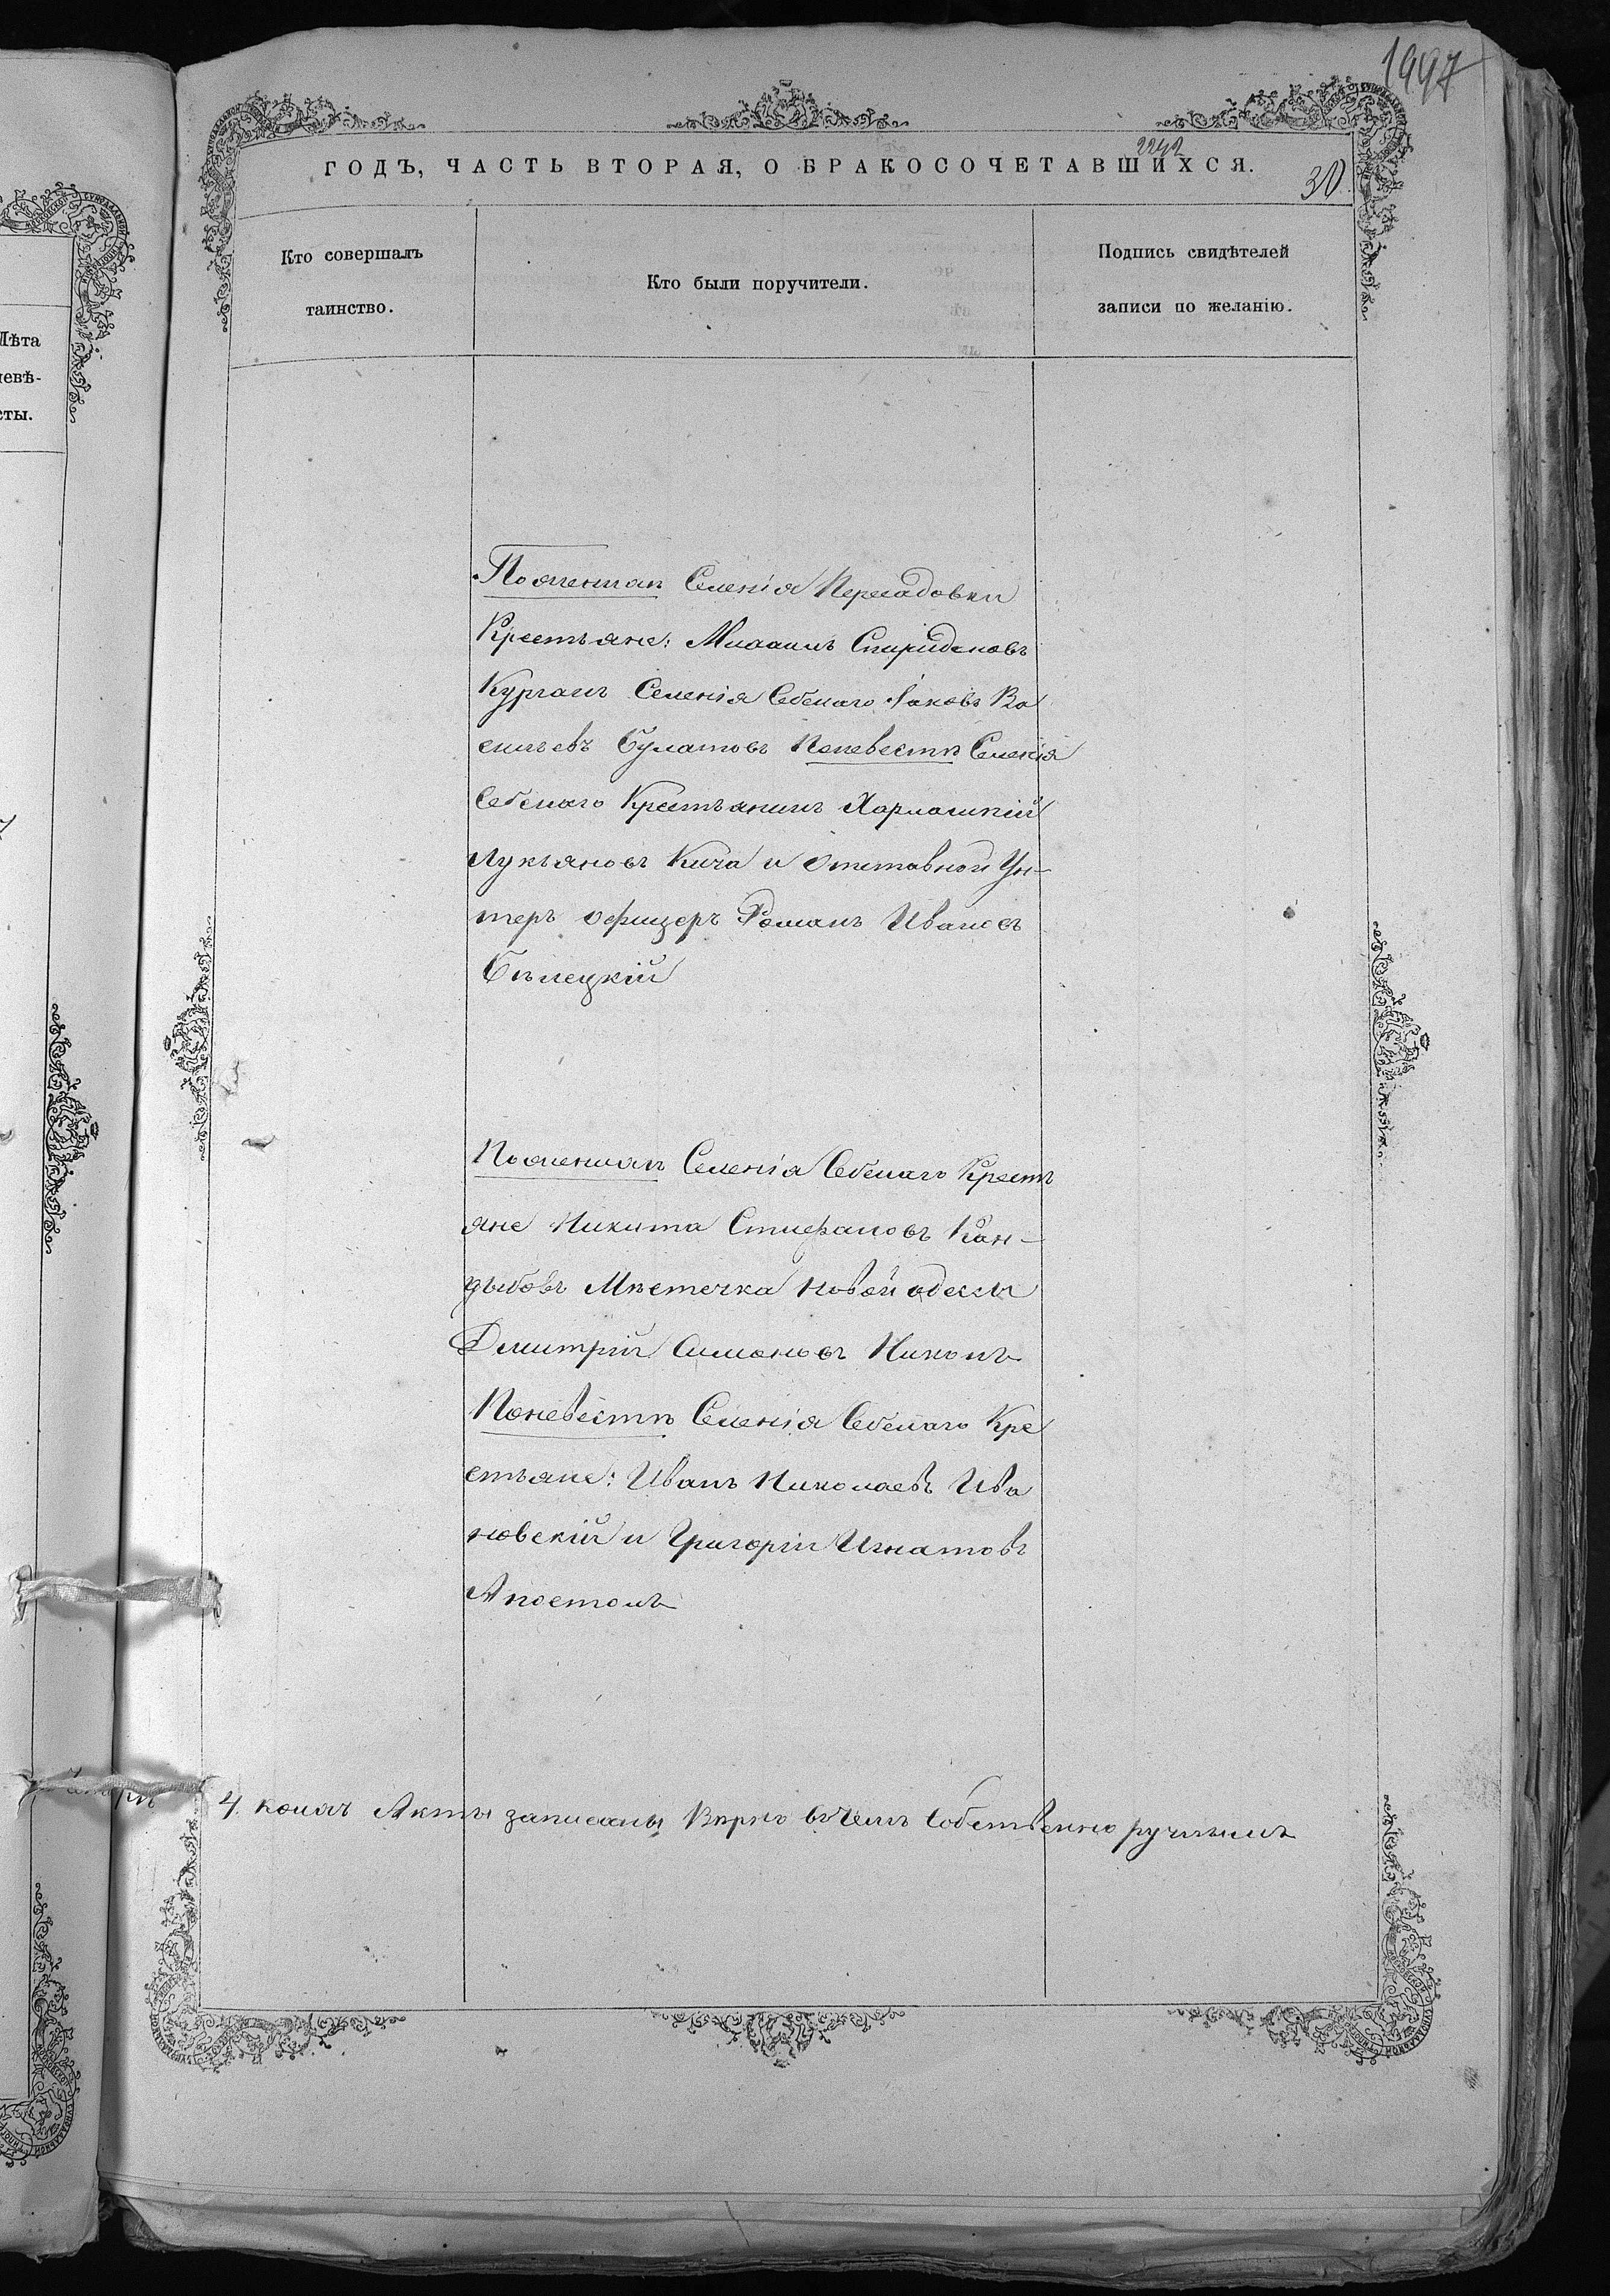 1997
2292
ГОДЪ, ЧАСТЬ ВТОРАЯ, О БРАКОСОЧЕТАВШИХСЯ.
30.
Лѣта
невѣ-
сты.
Кто совершалъ
таинство.
Кто были поручители.
Подпись свидѣтелей
записи по желанію.
Поженихѣ Селенія Пересадовки
Крестьяне: Михаилъ Спиридоновъ
Курганъ Селенія Себенаго Іаковъ Ва
сильевъ Булатовъ Поневестѣ Селенія
Себенаго Крестьянинъ Харлампій
Лукьяновъ Кича и Отставной Ун-
теръ офицеръ Романъ Ивановъ
Бѣлецкій
Поженихѣ Селенія Себенаго Кресть
яне Никита Стефановъ Кан-
дыбовъ Мѣстечка Новой одессы
Дмитрій Симоновъ Никонъ
Поневестѣ Селенія Себенаго Кре
стьяне: Иванъ Николаевъ Ива
новскій и Григорій Игнатовъ
Апостолъ
4. Акты записаны Вѣрно вчемъ Собственно ручнымъ